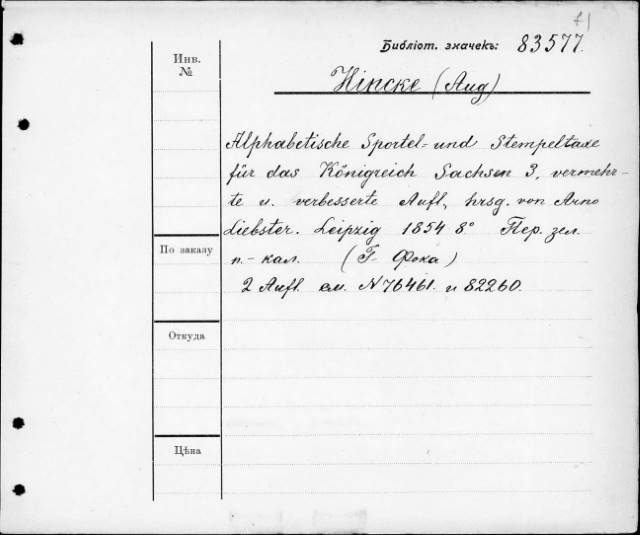 Библіот. значекъ: 83577.
Инв.
№
Hincke (Aug)
Alphabetische Sportel- und Stempeltaxe
für das Königreich Sachsen 3, vermehr-
te u. verbesserte Aufl, hrsg. von Arno
Liebster. Leipzig 1854 8° Пер. зел.
По заказу
п.-кал. (Г- Фока)
2 Aufl. см. N 76461. и 82260.
Откуда
Цѣна